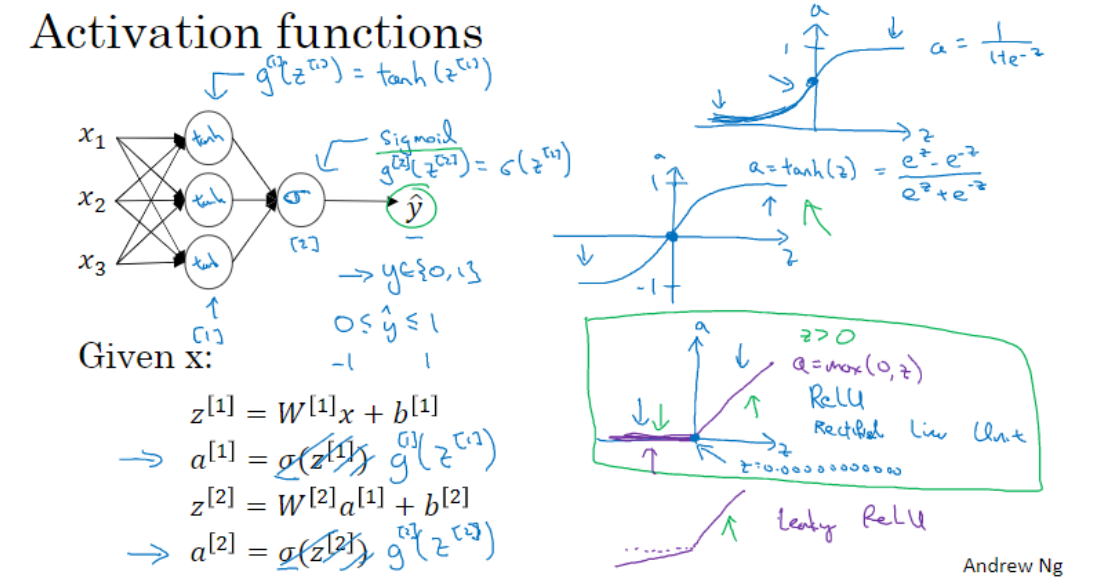 Activation functions
g^[1](z^[1]) = tanh(z^[1])
x₁
x₂
x₃
tanh
tanh
tanh
[1]
σ
[2]
Sigmoid
g^[2](z^[2]) = σ(z^[2])
ŷ
→ y∈{0,1}
0 ≤ ŷ ≤ 1
-1 1
Given x:
z^[1] = W^[1]x + b^[1]
→ a^[1] = σ(z^[1]) g^[1](z^[1])
z^[2] = W^[2]a^[1] + b^[2]
→ a^[2] = σ(z^[2]) g^[2](z^[2])
a
1
z
a = 1/(1+e^-z)
a
1
-1
z
a = tanh(z) = (e^z - e^-z)/(e^z + e^-z)
a
z
z>0
a = max(0,z)
ReLU
Rectified Linear Unit
z=0.00000000000
Leaky ReLU
Andrew Ng